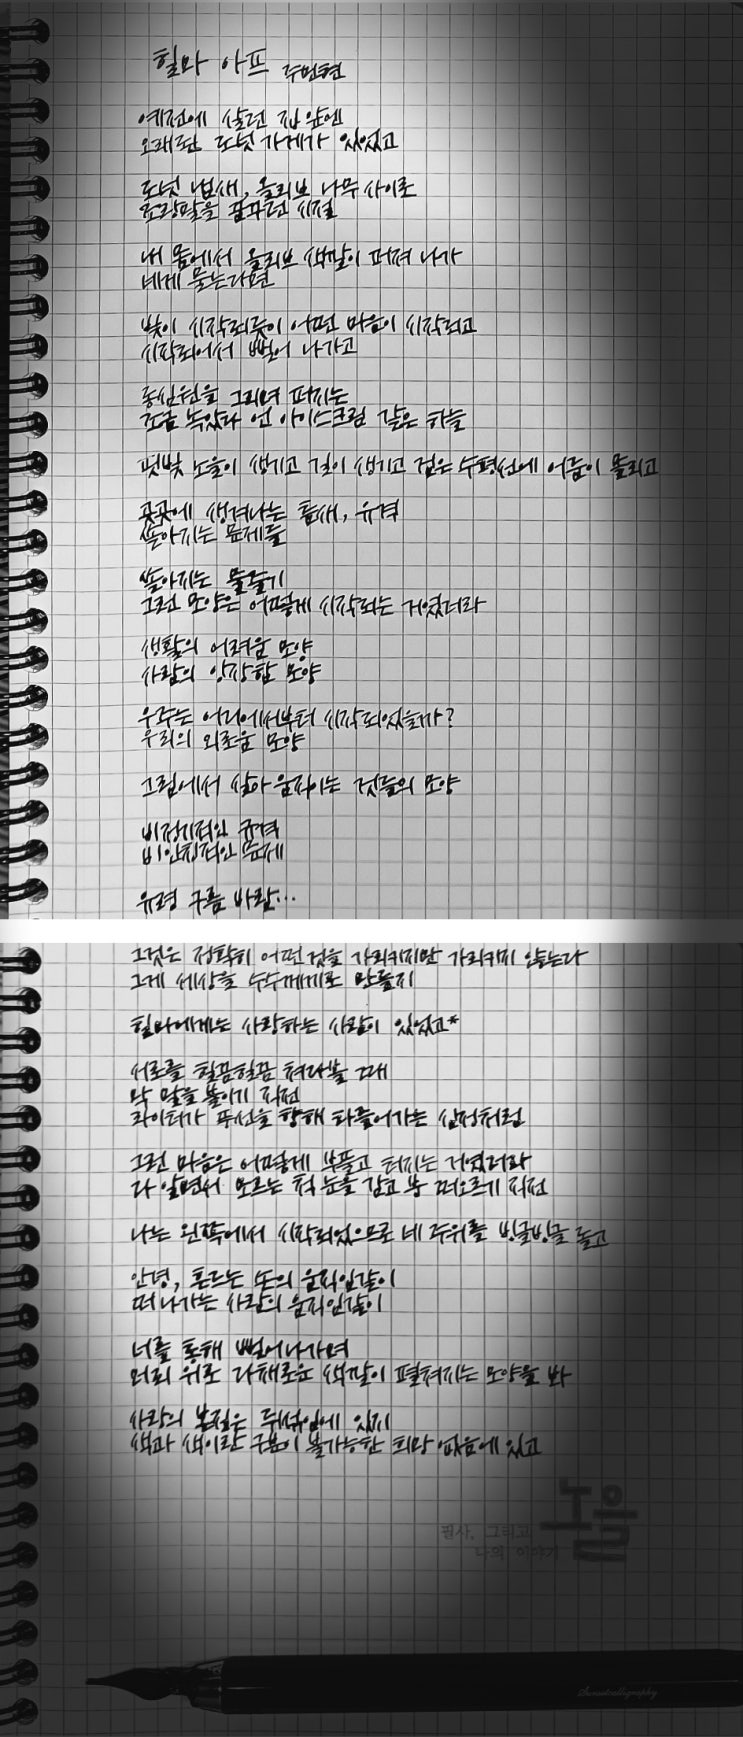 힐마 아프 주민현
예전에 살던 집 앞엔
오래된 도넛 가게가 있었고
도넛 냄새, 올리브 나무 사이로
요랑을 꿈꾸던 시절
내 몸에서 올리브 색깔이 퍼져 나가
네게 묻는다면
빛이 시작되듯이 어떤 마음이 시작되고
시작되어서 뻗어 나가고
동심원을 그리며 퍼지는
조금 녹았다 언 아이스크림 같은 하늘
핏빛 노을이 생기고 길이 생기고 검은 수평선에 어둠이 몰리고
곳곳에 생겨나는 틈새, 유격
쏟아지는 문제들
쏟아지는 물줄기
그런 모양은 어떻게 시작되는 거였더라
생활의 어려운 모양
사람의 앙상한 모양
우주는 어디에서부터 시작되었을까?
우리의 외로운 모양
그림에서 살아 움직이는 것들의 모양
비정기적인 규격
비인칭적인 문제
유령 구름 바람…
그것은 정확히 어떤 것을 가리키지만 가리키지 않는다
그게 세상을 수수께끼로 만들지
힐마에게는 사랑하는 사람이 있었고*
서로를 힐끔힐끔 쳐다볼 때
막 말을 붙이기 직전
라이터가 풍선을 향해 타들어가는 심정처럼
그런 마음은 어떻게 부풀고 터지는 거였더라
다 알면서 모르는 척 눈을 감고 붕 떠오르기 직전
나는 왼쪽에서 시작되었으므로 네 주위를 빙글빙글 돌고
안녕, 흔드는 손의 움직임같이
떠나가는 사람의 움직임같이
너를 통해 뻗어나가며
머리 위로 다채로운 색깔이 펼쳐지는 모양을 봐
사랑의 본질은 뒤섞임에 있지
색과 색이란 구분이 불가능한 희망 없음에 있고
필사, 그리고 노을
나의 이야기
Sunsetcalligraphy